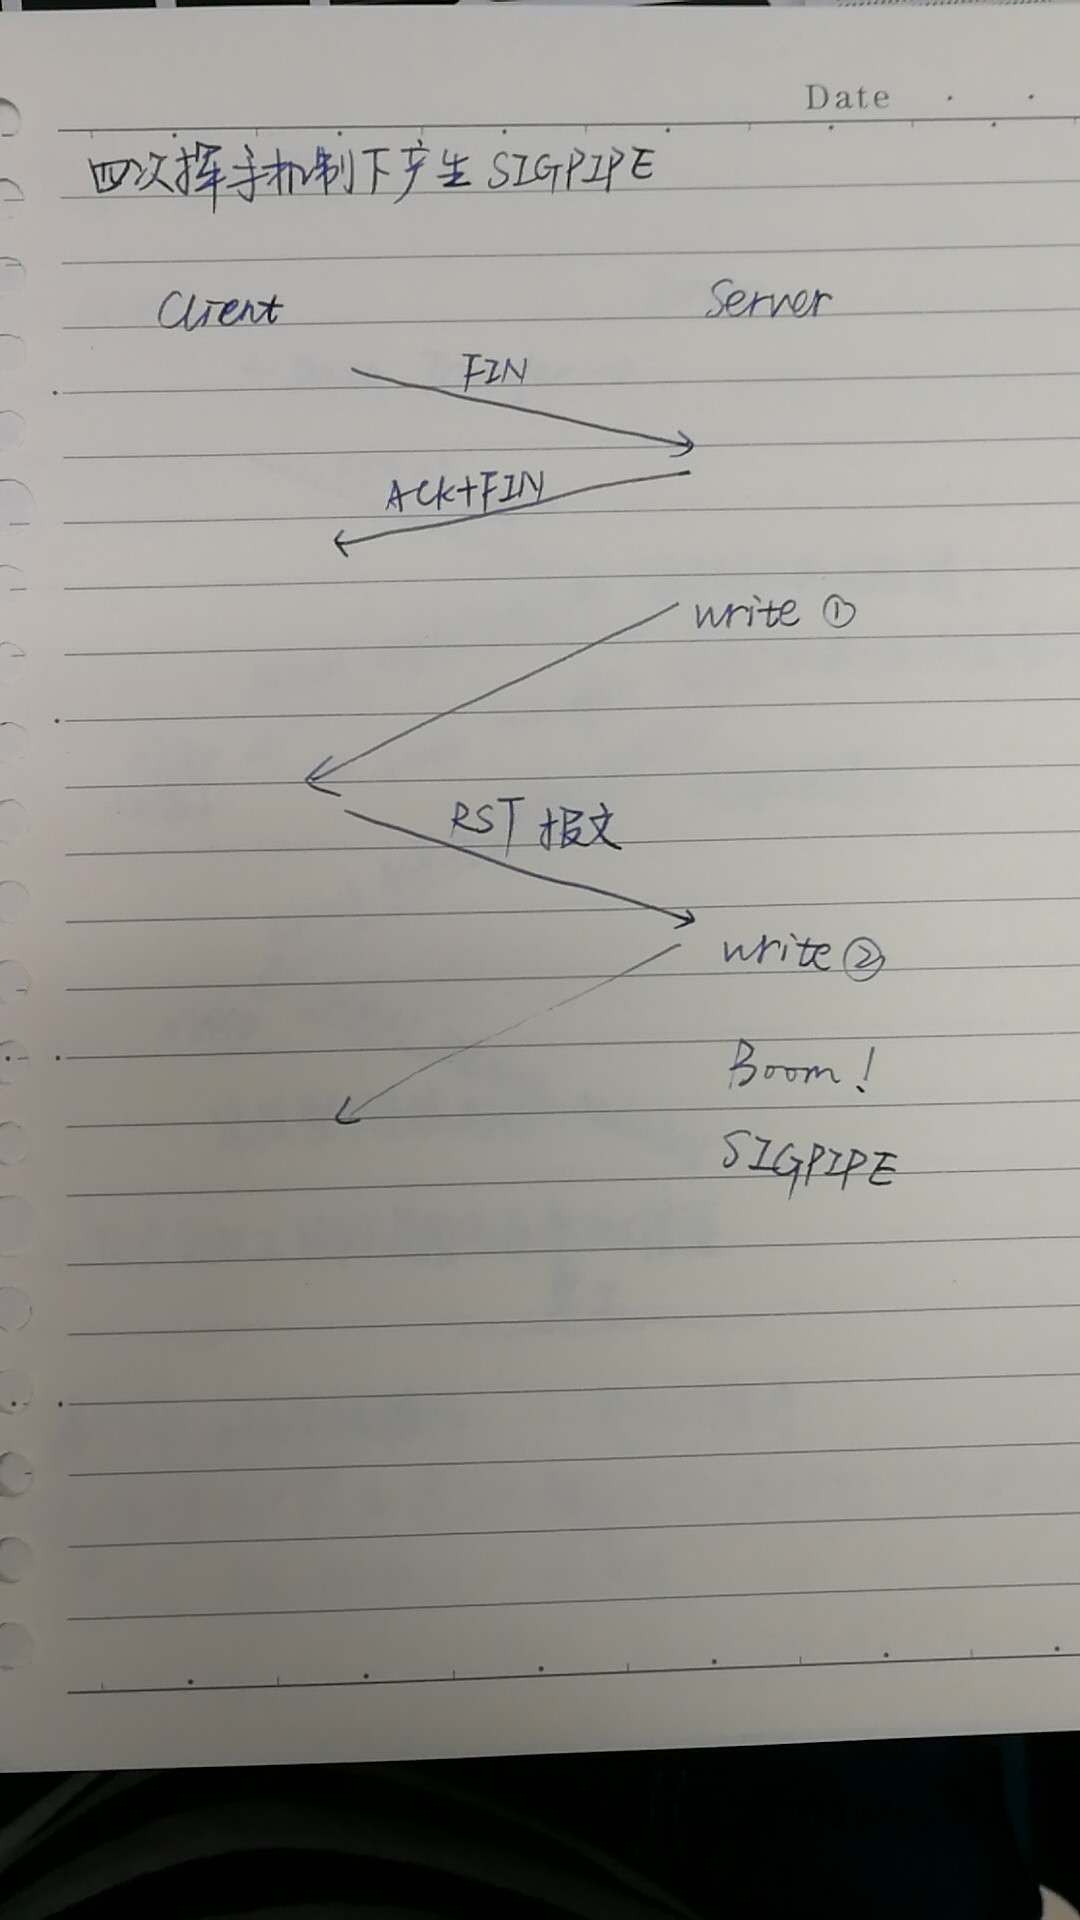 Date
四次挥手机制下产生 SIGPIPE
Client Server
FIN
ACK+FIN
write ①
RST 报文
write ②
Boom!
SIGPIPE